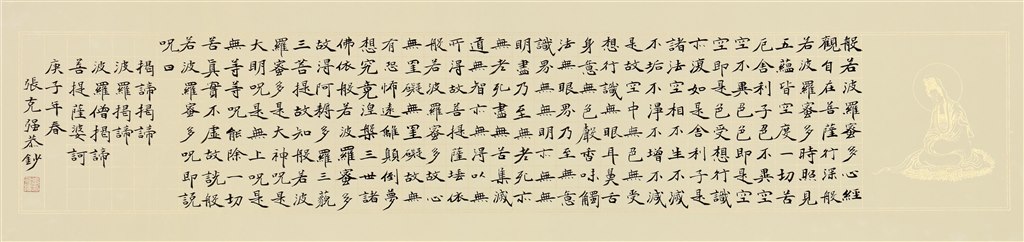 般若波羅蜜多心經
觀自在菩薩行深般
若波羅蜜多時照見
五蘊皆空度一切苦
厄舍利子色不異空
空不異色色即是空
空即是色受想行識
亦復如是舍利子是
諸法空相不生不滅
不垢不淨不增不減
是故空中無色無受
想行識無眼耳鼻舌
身意無色聲香味觸
法無眼界乃至無意
識界無無明亦無無
明盡乃至無老死亦
無老死盡無苦集滅
道無智亦無得以無
所得故菩提薩埵依
般若波羅蜜多故心
無罣礙無罣礙故無
有恐怖遠離顛倒夢
想究竟涅槃三世諸
佛依般若波羅蜜多
故得阿耨多羅三藐
三菩提故知般若波
羅蜜多是大神呪是
大明呪是無上呪是
無等等呪能除一切
苦真實不虛故説般
若波羅蜜多呪即説
呪曰
揭諦揭諦
波羅揭諦
波羅僧揭諦
菩提薩婆訶
庚子年春
張克强恭鈔